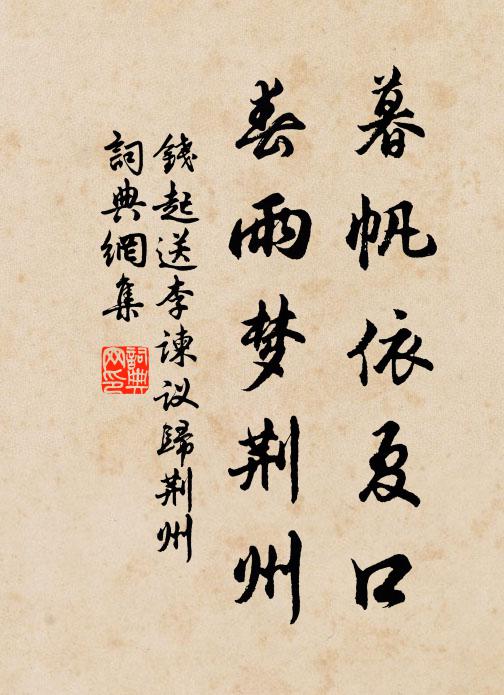 暮帆依夏口
春雨梦荆州
錢起送李諫议歸荆州
詞典網集
詞典网印